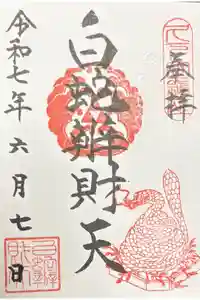 奉拝
白蛇辨財天
令和七年六月七日